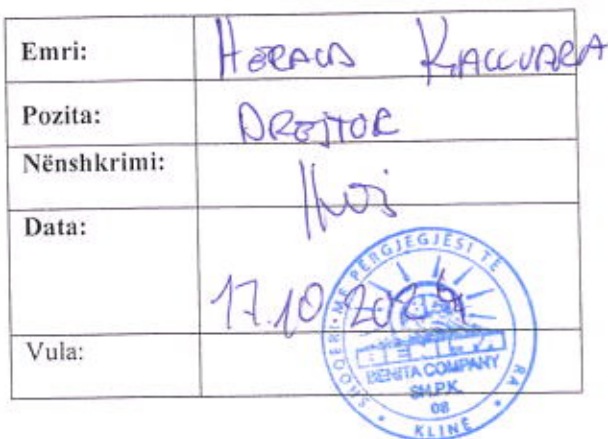 Emri: HERALD KACCUARA
Pozita: DREJTOR
Nënshkrimi:
Data: 17.10.2024
Vula:
SHOQERI ME PËRGJEGJËSI TË
BENITA
BENITA COMPANY
SH.P.K.
08
KLINË